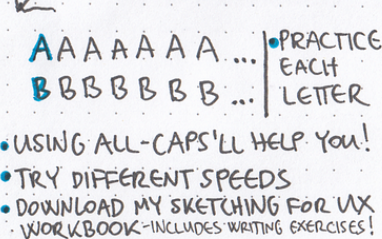 AAAAAAA ... •PRACTICE
EACH
BBBBBBB ... LETTER
•USING ALL-CAPS'LL HELP YOU!
•TRY DIFFERENT SPEEDS
•DOWNLOAD MY SKETCHING FOR UX
WORKBOOK-INCLUDES WRITING EXERCISES!